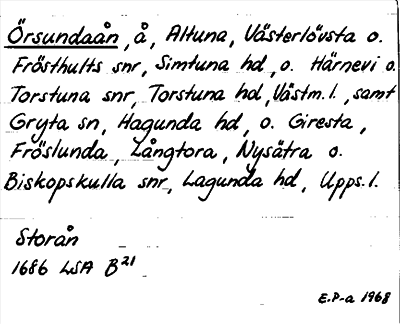 Örsundaån, å, Altuna, Västerlövsta o.
Frösthults snr, Simtuna hd, o. Härnevi o.
Torstuna snr, Torstuna hd, Västm.l., samt
Gryta sn, Hagunda hd, o. Giresta,
Fröslunda, Långtora, Nysätra o.
Biskopskulla snr, Lagunda hd, Upps.l.
Storån
1686 LSA B²¹
E.P-a 1968